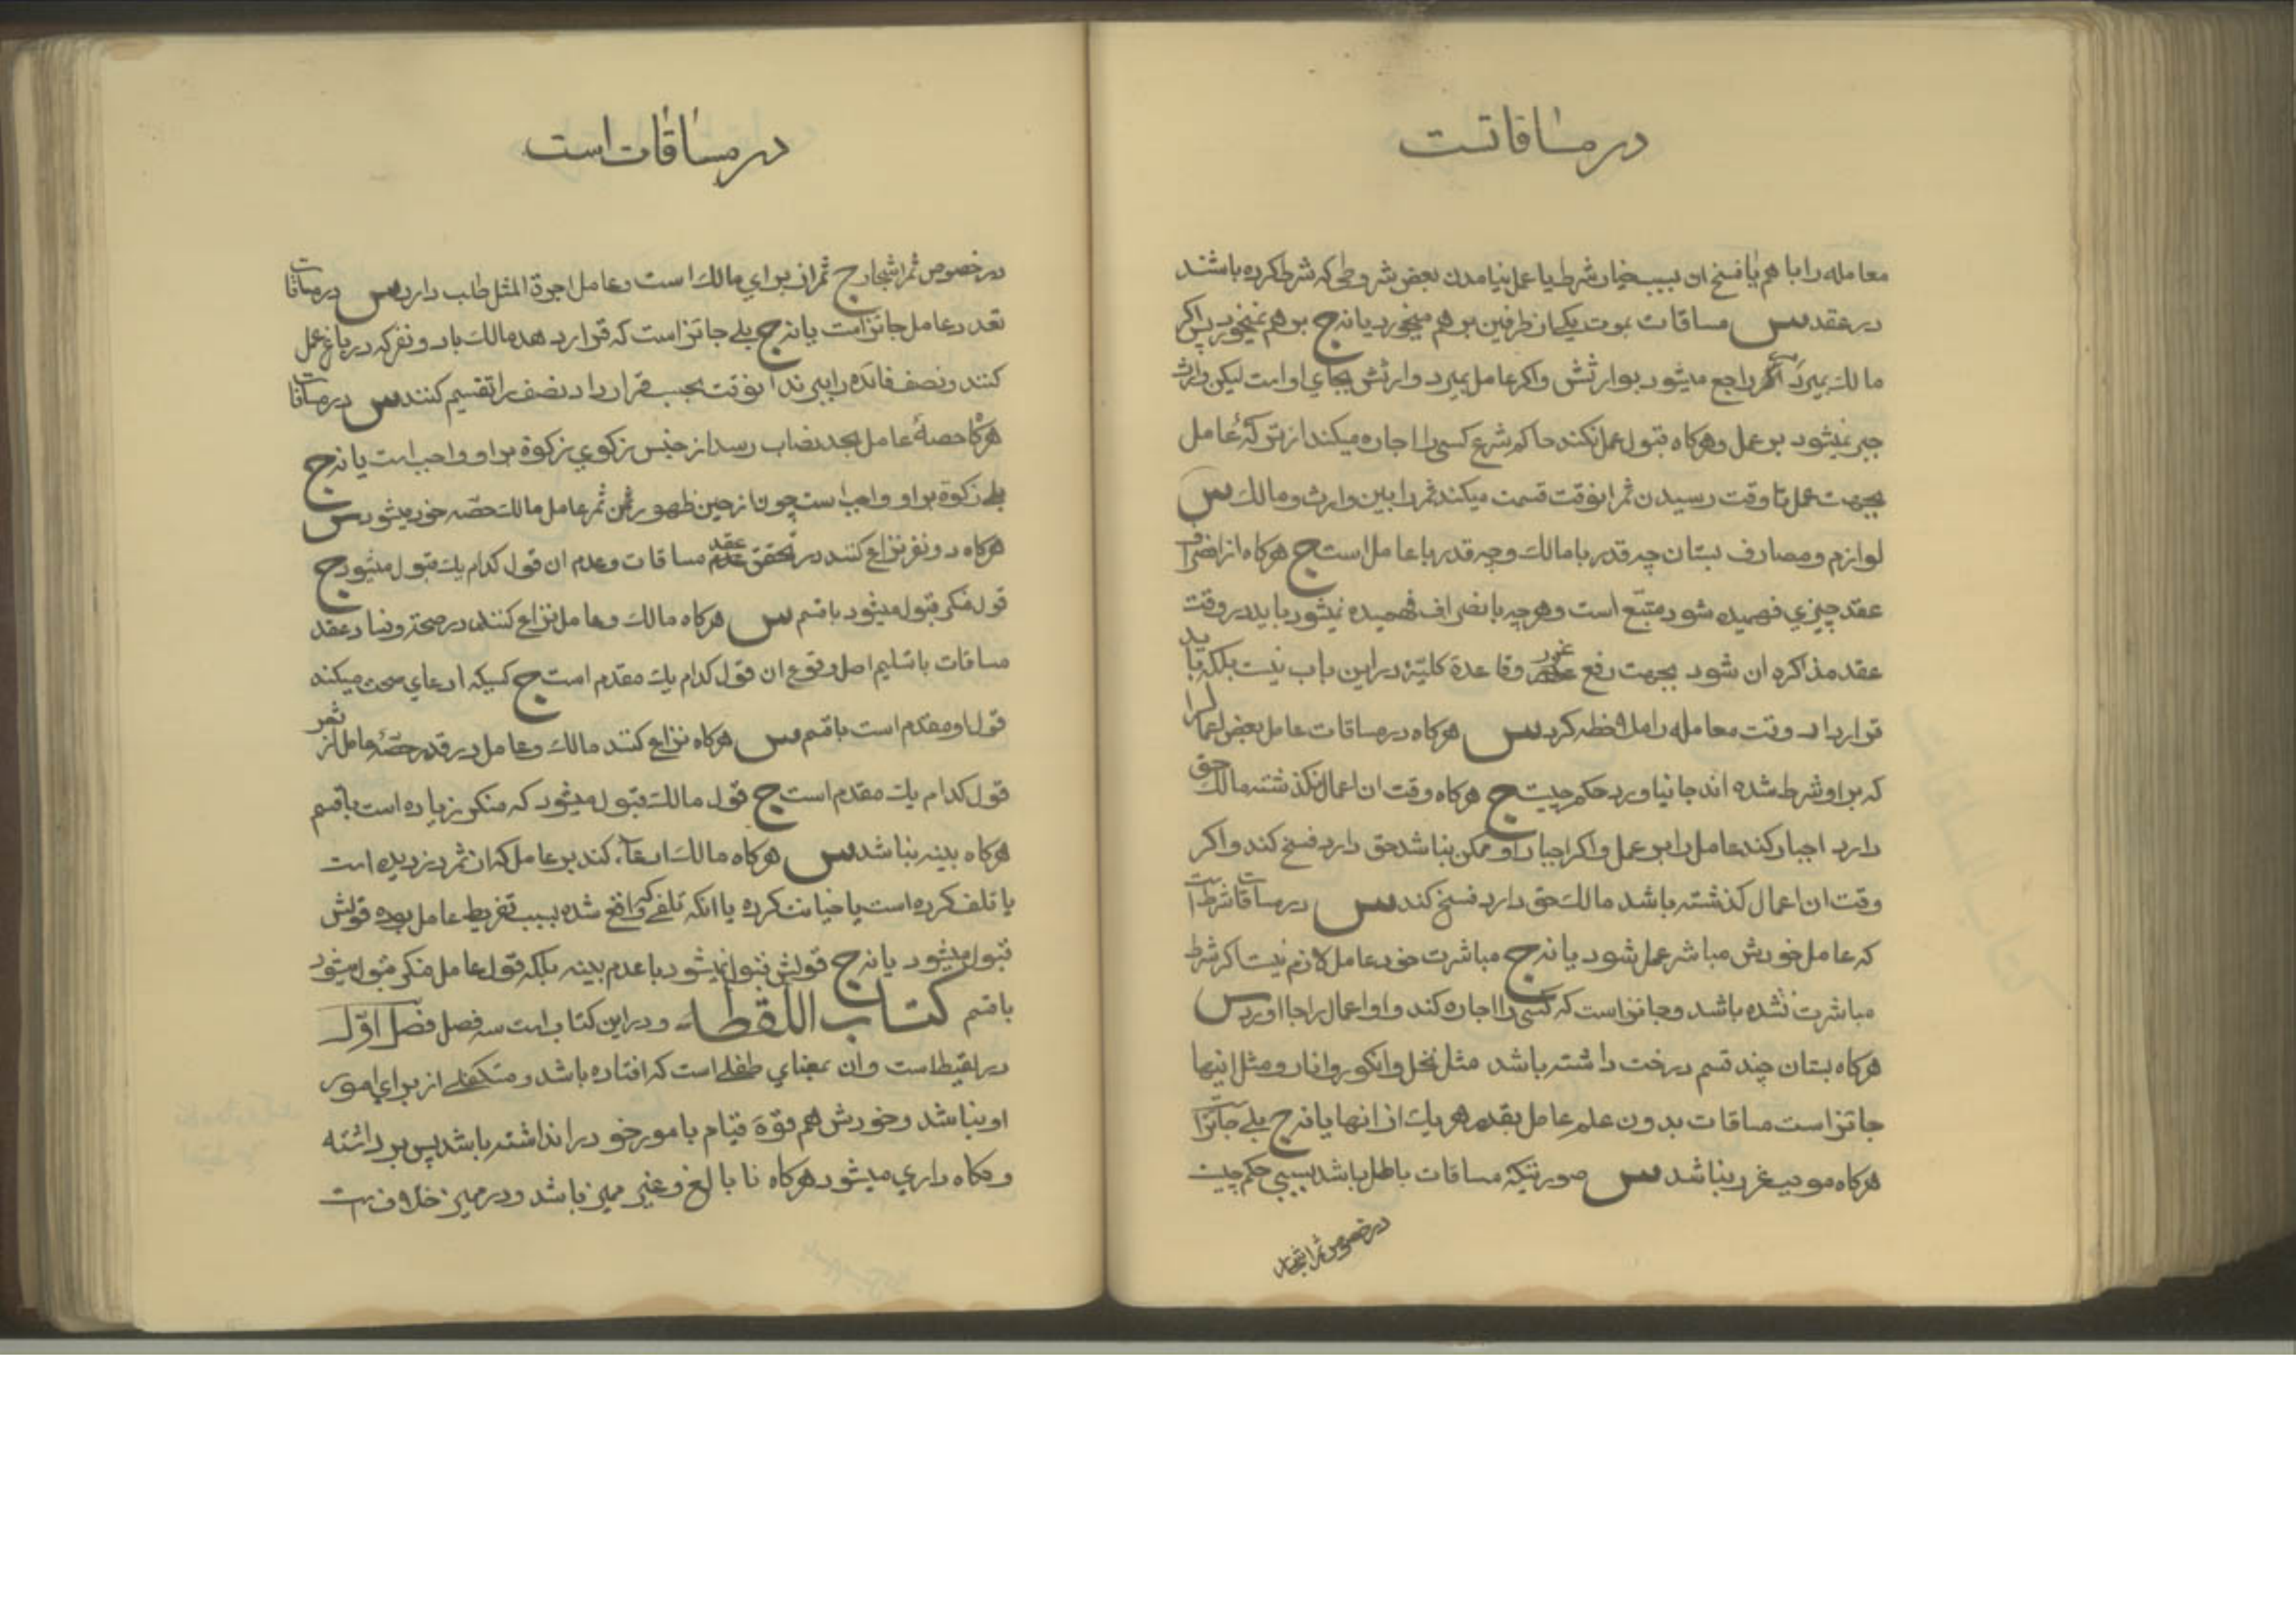 در مساقاتست
معامله را با هم یا فسخ ان بسبب خیار شرط یا عمل نیامدن بعض شروطی که شرط کرده باشند
در عقد س مساقات بموت یکی از طرفین بر هم میخورد یا نه ج بر هم نمیخورد پس اکر
مالك بمیرد راجع میشود بوارثش واکر عامل بمیرد وارثش بجای او است لیکن وارث
جبر نمیشود بر عمل و هرکاه قبول عمل نکند حاکم شرع کسی را اجاره میکند از ترکهٔ عامل
بجهت عمل تا وقت رسیدن ثمر انوقت قسمت میکند ثمر را بین وارث و مالك س
لوازم و مصارف بستان چه قدر با مالك وچه قدر با عامل است ج هرکاه از انصراف
عقد چیزی فهمیده شود متبع است وهرچه بانصراف فهمیده نمیشود باید در وقت
عقد مذاکره ان شود بجهت رفع غرر وقاعدة کلیّهٔ در این باب نیست بلکه باید
قرارداد وقت معامله را ملاحظه کرد س هرکاه در مساقات عامل بعض اعمال را
که بر او شرط شده اند جا نیاورد حکم چیست ج هرکاه وقت ان اعمال نکذشته مالك حق
دارد اجبار کند عامل را بر عمل واکر اجبار او ممکن نباشد حق دارد فسخ کند واکر
وقت ان اعمال کذشته باشد مالك حق دارد فسخ کند س در مساقات شرط است
که عامل خودش مباشر عمل شود یا نه ج مباشرت خود عامل لازم نیست اکر شرط
مباشرت نشده باشد وجائز است که کسی را اجاره کند و او اعمال را جا اورد س
هرکاه بستان چند قسم درخت داشته باشد مثل نخل وانکور وانار ومثل اینها
جائز است مساقات بدون علم عامل بقدر هر یك از انها یا نه ج بلی جائز است
هرکاه موجب غرر نباشد س صورتیکه مساقات باطل باشد بسببی حکم چیست
در خصوص ثمر اشجار
در مساقات است
در خصوص ثمر اشجار ج ثمر ان برای مالك است وعامل اجرة المثل طلب دارد س در مساقات
تعدد عامل جائز است یا نه ج بلی جائز است که قرار دهد مالك با دو نفر که در باغ عمل
کنند ونصف فائده را ببرند انوقت بحسب قرارداد نصف را تقسیم کنند س در مساقات
هرکاه حصهٔ عامل بحد نصاب رسد از جنس زکوی زکوة بر او واجب است یا نه ج
بلی زکوة بر او واجب است چون از حین ظهور ثمر عامل مالك حصّه خود میشود س
هرکاه دو نفر نزاع کنند در تحقق عقد مساقات وعدم ان قول کدام یك قبول میشود ج
قول منکر قبول میشود با قسم س هرکاه مالك وعامل نزاع کنند در صحة وفساد عقد
مساقات با تسلیم اصل وقوع ان قول کدام یك مقدم است ج کسیکه ادعای صحت میکند
قول او مقدم است با قسم س هرکاه نزاع کنند مالك وعامل در قدر حصّهٔ عامل از ثمر
قول کدام یك مقدم است ج قول مالك قبول میشود که منکر زیاده است با قسم
هرکاه بینه نباشد س هرکاه مالك ادعاء کند بر عامل که ان ثمر دزدیده است
یا تلف کرده است یا خیانت کرده یا انکه تلفی که واقع شده بسبب تفریط عامل بوده قولش
قبول میشود یا نه ج قولش قبول نمیشود با عدم بینه بلکه قول عامل منکر قبول میشود
با قسم کتاب اللقطه ودر این کتاب است سه فصل فصل اوّل
در لقیط است وان بمعنای طفلی است که افتاده باشد ومتکفلی از برای امور
او نباشد وخودش هم قوّة قیام بامور خود را نداشته باشد پس برداشته
ونکاه داری میشود هرکاه نا بالغ وغیر ممیز باشد ودر ممیز خلاف است